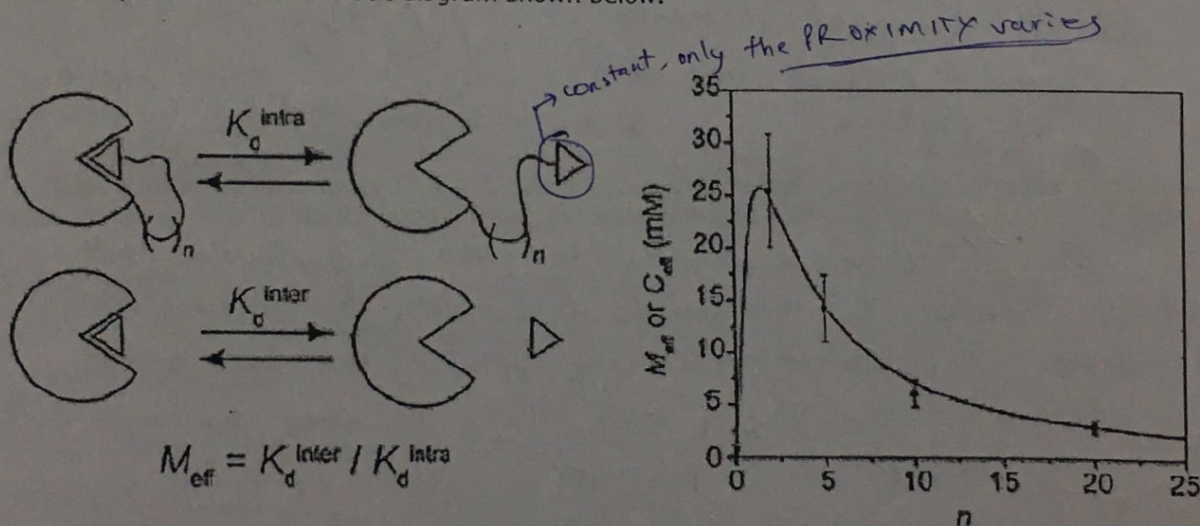 diagram shown below.
constant, only the PROXIMITY varies
K_d^intra
n
n
K_d^inter
M_eff = K_d^inter / K_d^intra
M_eff or C_eff (mM)
35
30
25
20
15
10
5
0
0 5 10 15 20 25
n